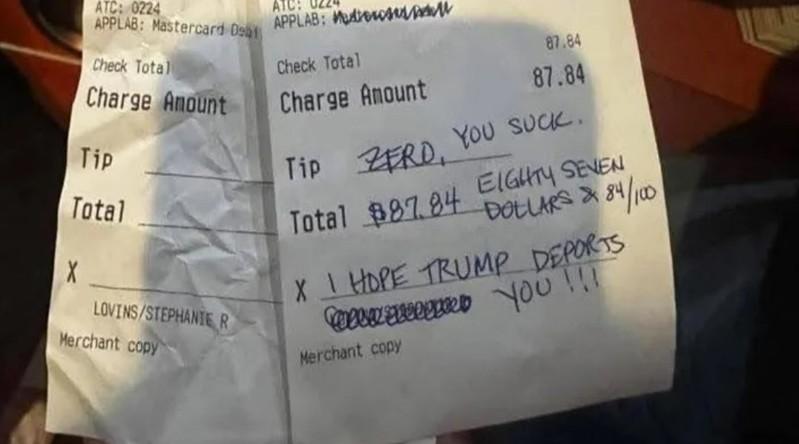 ATC: 0224
APPLAB: Mastercard Debi
Check Total
Charge Amount
Tip
Total
X
LOVINS/STEPHANIE R
Merchant copy
ATC: 0224
APPLAB:
87.84
Check Total
87.84
Charge Amount
Tip ZERO, YOU SUCK.
Total $87.84 EIGHTY SEVEN
DOLLARS & 84/100
X I HOPE TRUMP DEPORTS
YOU !!!
Merchant copy